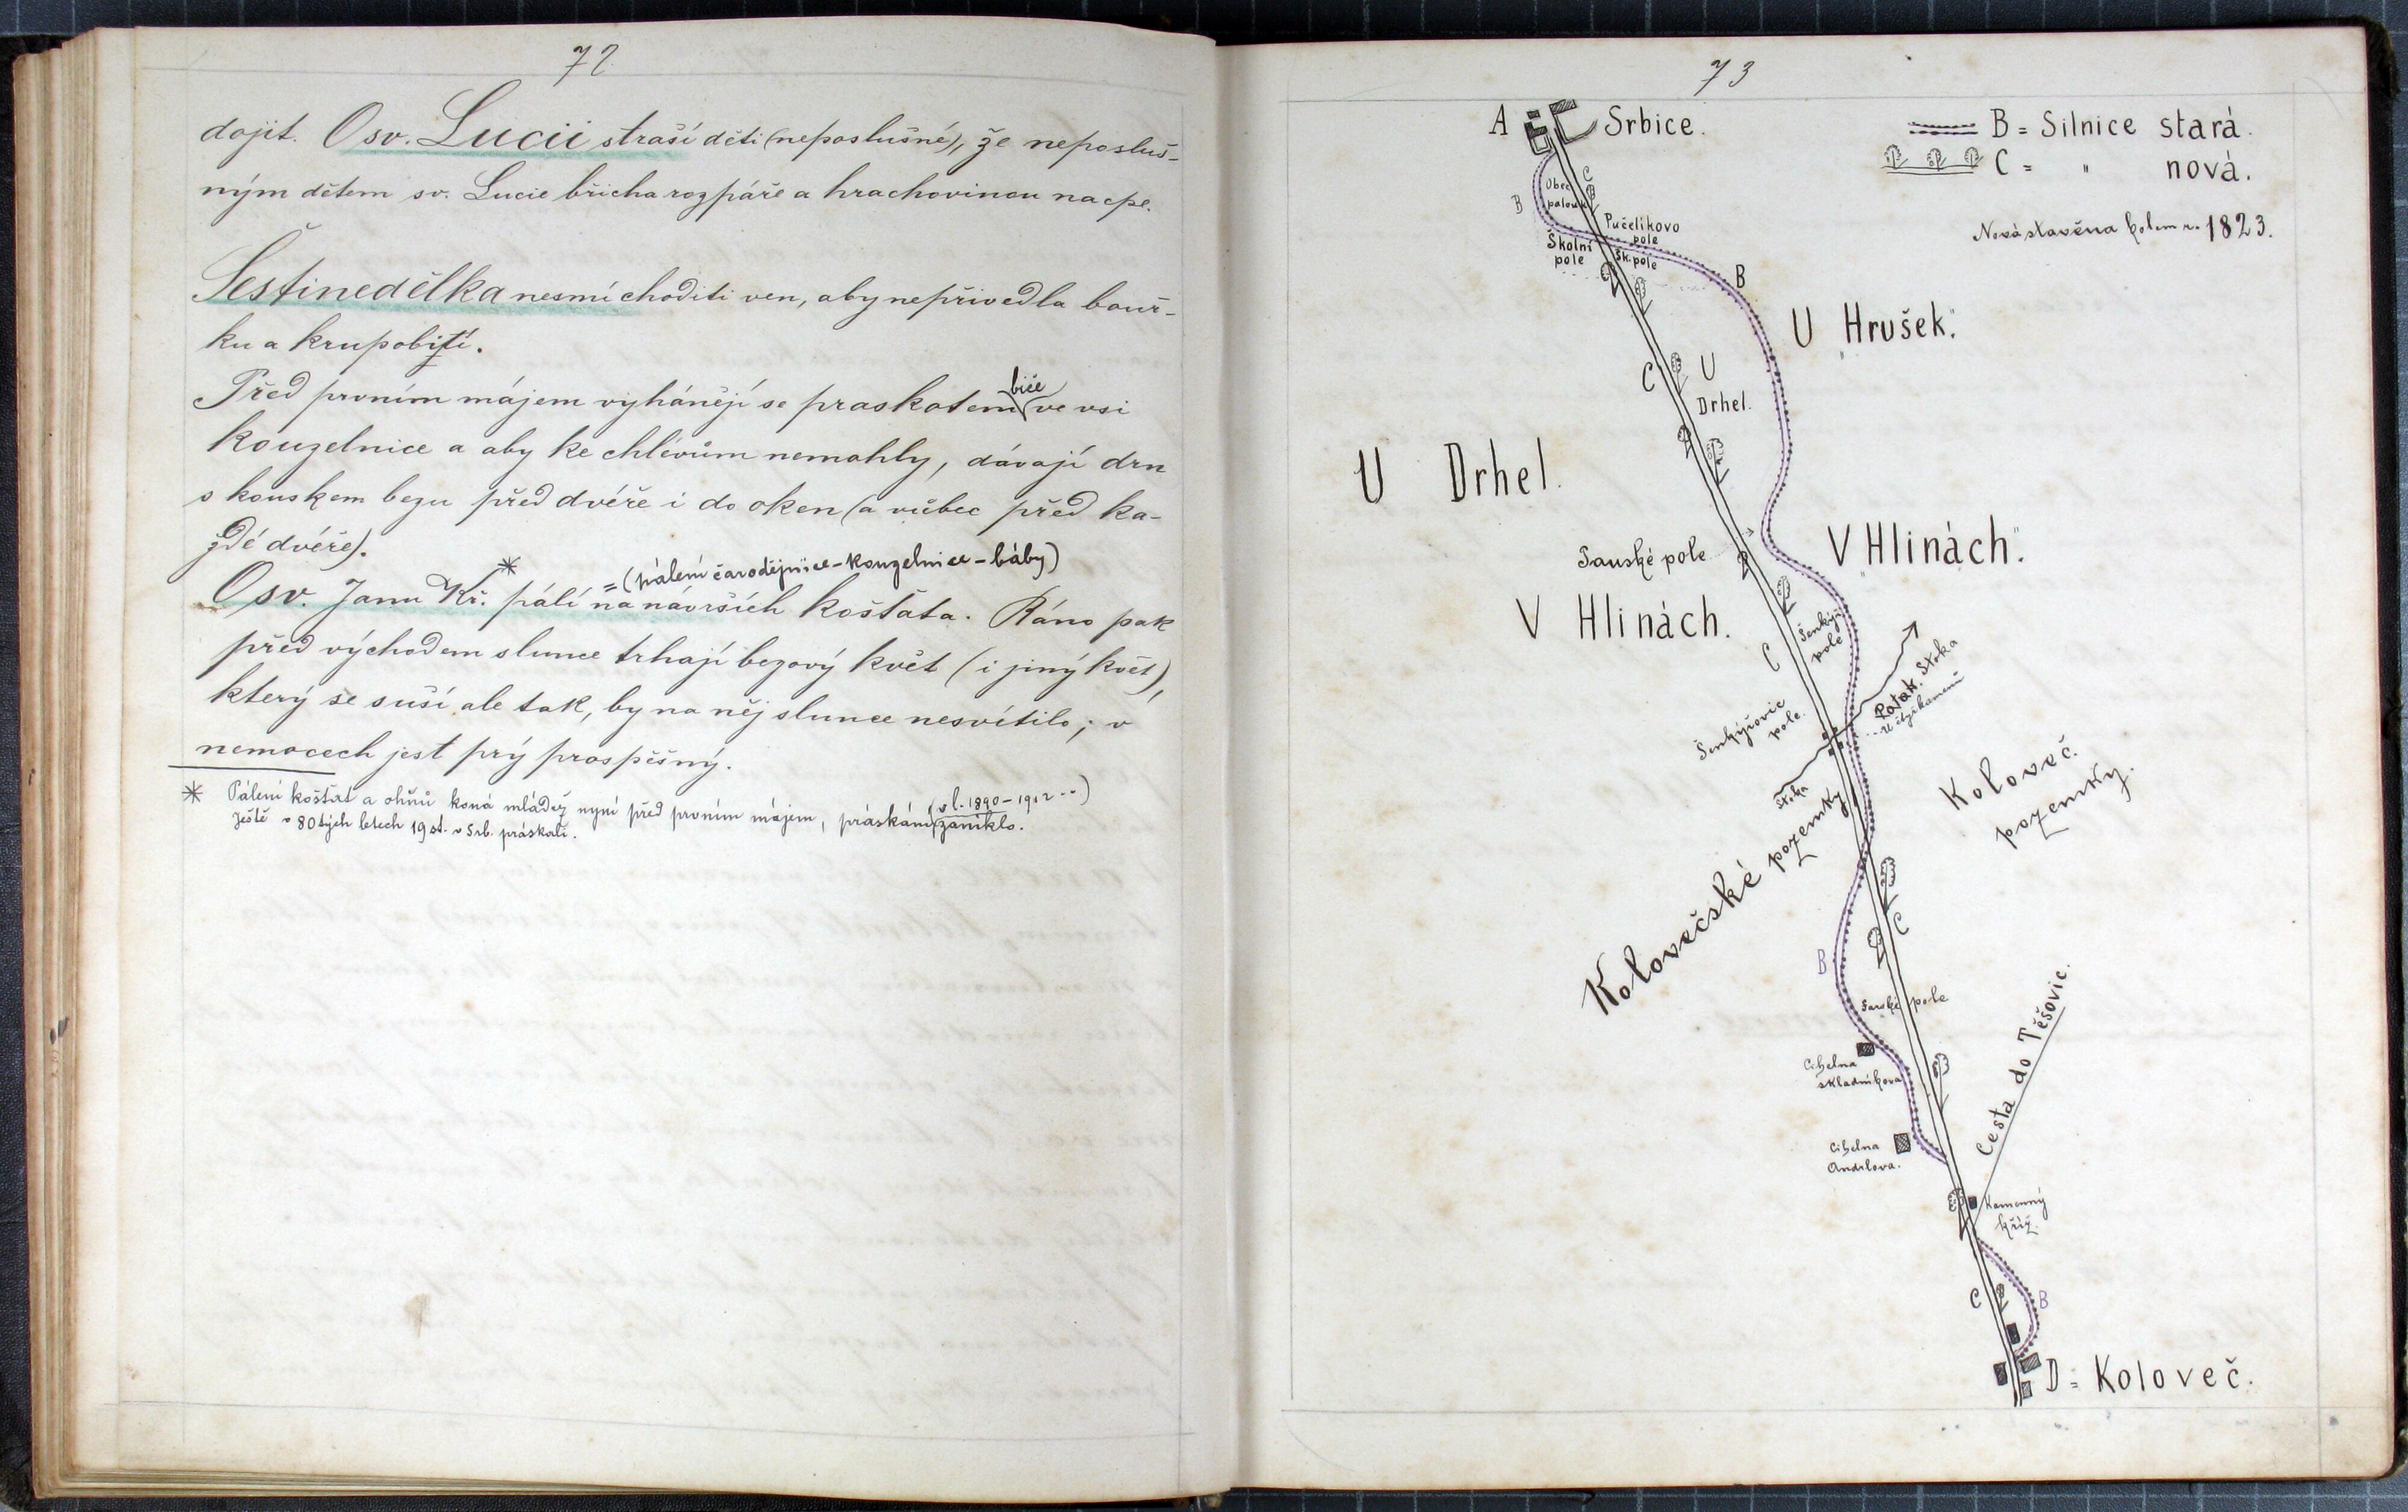 72
dojit. O sv. Lucii straší děti (neposlušné), že nepösluš-
ným dětem sv. Lucie břicha rozpáře a hrachovinou nacpe.
Šestinedělka nesmí choditi ven, aby nepřivedla bouř-
ku a krupobití.
Před prvním májem vyhánějí se praskotem biče ve vsi
kouzelnice a aby ke chlévům nemohly, dávají drn
s kouskem bezu před dvéře i do oken (a vůbec před ka-
ždé dvéře).
= (pálení čarodějnice - kouzelnice - báby)
O sv. Janu Kř.* pálí na návrších košťata. Ráno pak
před východem slunce trhají bezový květ (i jiný květ),
který se suší ale tak, by na něj slunce nesvítilo; v
nemocech jest prý prospěšný.
* Pálení košťat a ohňů koná mládež nyní před prvním májem, práskání (v l. 1890 - 1912 --) zaniklo.
Ještě v 80tých letech 19 st. v Srb. práskali.
73
A Srbice.
B = Silnice stará.
C = " nová.
Nová stavěna kolem r. 1823.
C
Obec.
palouk
B
Pučelíkovo
pole
Školní
pole
Šk. pole
B
U "Hrušek."
C
U
Drhel.
U Drhel.
V "Hlinách."
Panské pole
V Hlinách.
Šenkýř.
pole
C
Potok. Stoka
U čtyř kamenů
Šenkýřovic
pole.
Stoka
Koloveč.
pozemky.
Kolovečské pozemky
C
B
Panské pole
Cihelna
skladníkova
Cesta do Těšovic.
Cihelna
Andrlova.
Kamenný
kříž.
C
B
D = Koloveč.